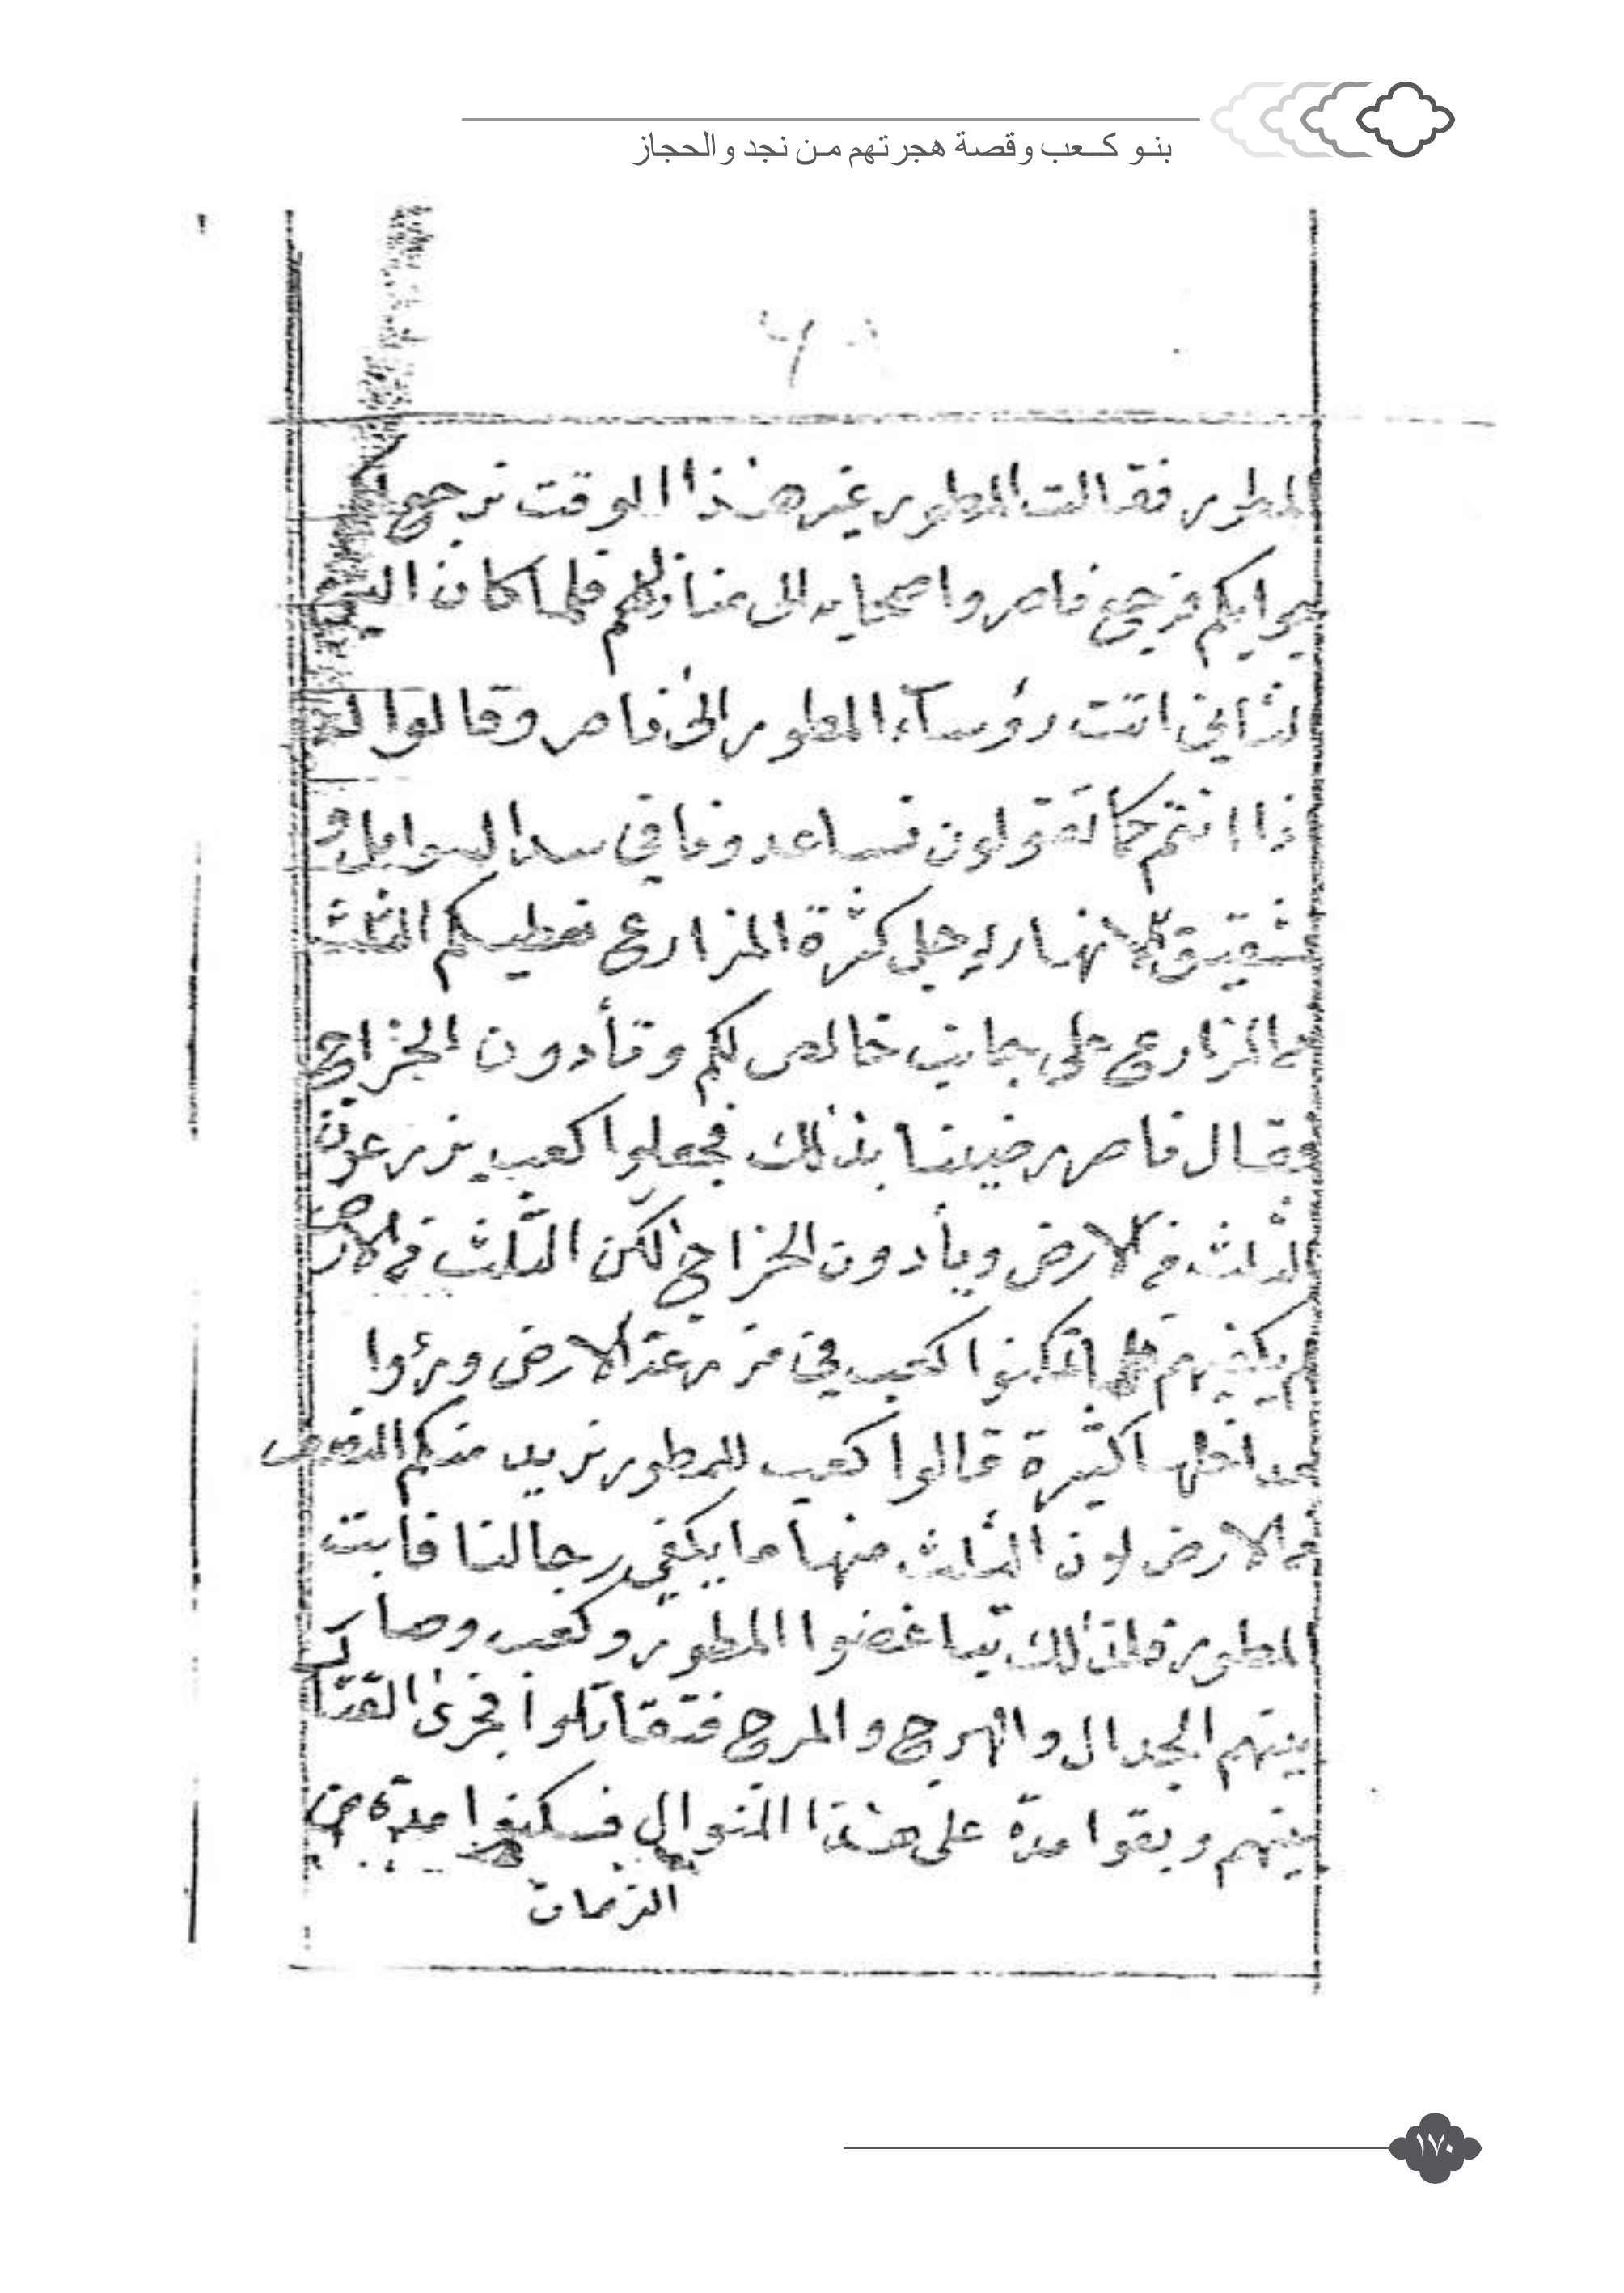 بنو كعب وقصة هجرتهم من نجد والحجاز
المطور فقالت المطور غير هذا الوقت نرجع
ايكم فرجع ناصر واصحابه الى منازلهم فلما كان اليوم
الثاني اتت رؤساء المطور الى ناصر وقالوا له
اذا انتم كما تقولون تساعدونا في سد السوابل و
تشقيق الانهار لاجل كثرة المزارع نعطيكم الثلث
من المزارع على جانب خالص لكم وتأدون الخراج
فقال ناصر رضينا بذلك فجعلوا كعب يزرعون
الثلث من الارض ويأدون الخراج لكن الثلث من الارض
لم يكفيهم فلما تمكنوا كعب في مزرعة الارض ورؤا
مداخلها كثيرة قالوا كعب للمطور نريد منكم النصف
من الارض لان الثلث منها ما يكفي رجالنا فابت
المطور فلذلك تباغضوا المطور وكعب وصار
بينهم الجدال والهرج والمرج فتقاتلوا فجرى القتال
بينهم وبقوا مدة على هذا المنوال فسكنوا مدة من
الزمان
١٧٠